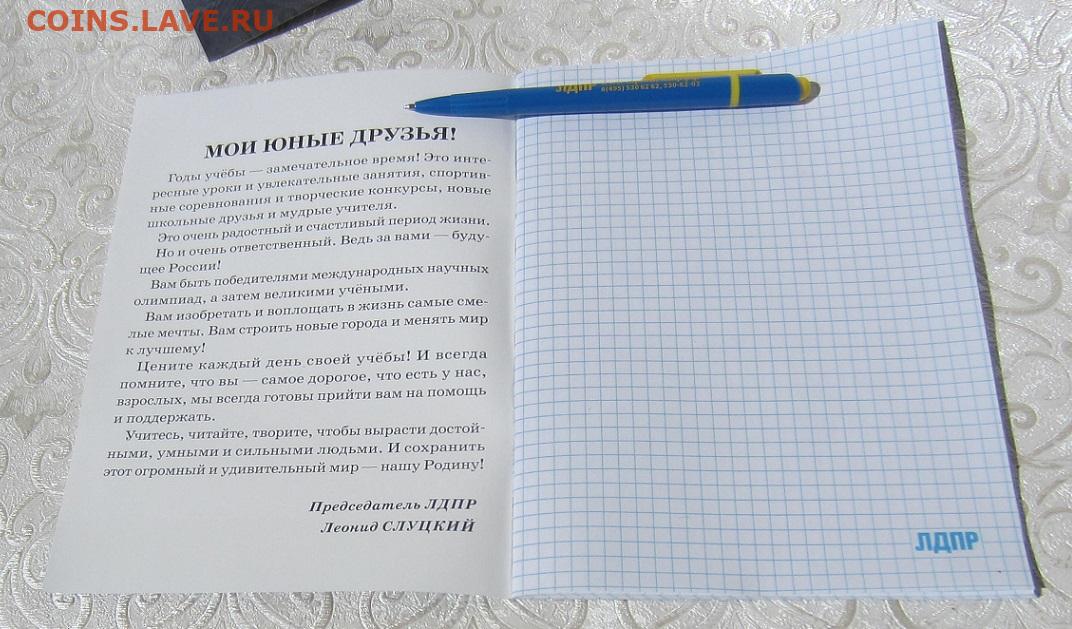 COINS.LAVE.RU
ЛДПР 8(495) 530 62 62, 530-62-03
МОИ ЮНЫЕ ДРУЗЬЯ!
Годы учёбы — замечательное время! Это инте-
ресные уроки и увлекательные занятия, спортив-
ные соревнования и творческие конкурсы, новые
школьные друзья и мудрые учителя.
Это очень радостный и счастливый период жизни.
Но и очень ответственный. Ведь за вами — буду-
щее России!
Вам быть победителями международных научных
олимпиад, а затем великими учёными.
Вам изобретать и воплощать в жизнь самые сме-
лые мечты. Вам строить новые города и менять мир
к лучшему!
Цените каждый день своей учёбы! И всегда
помните, что вы — самое дорогое, что есть у нас,
взрослых, мы всегда готовы прийти вам на помощь
и поддержать.
Учитесь, читайте, творите, чтобы вырасти достой-
ными, умными и сильными людьми. И сохранить
этот огромный и удивительный мир — нашу Родину!
Председатель ЛДПР
Леонид СЛУЦКИЙ
ЛДПР